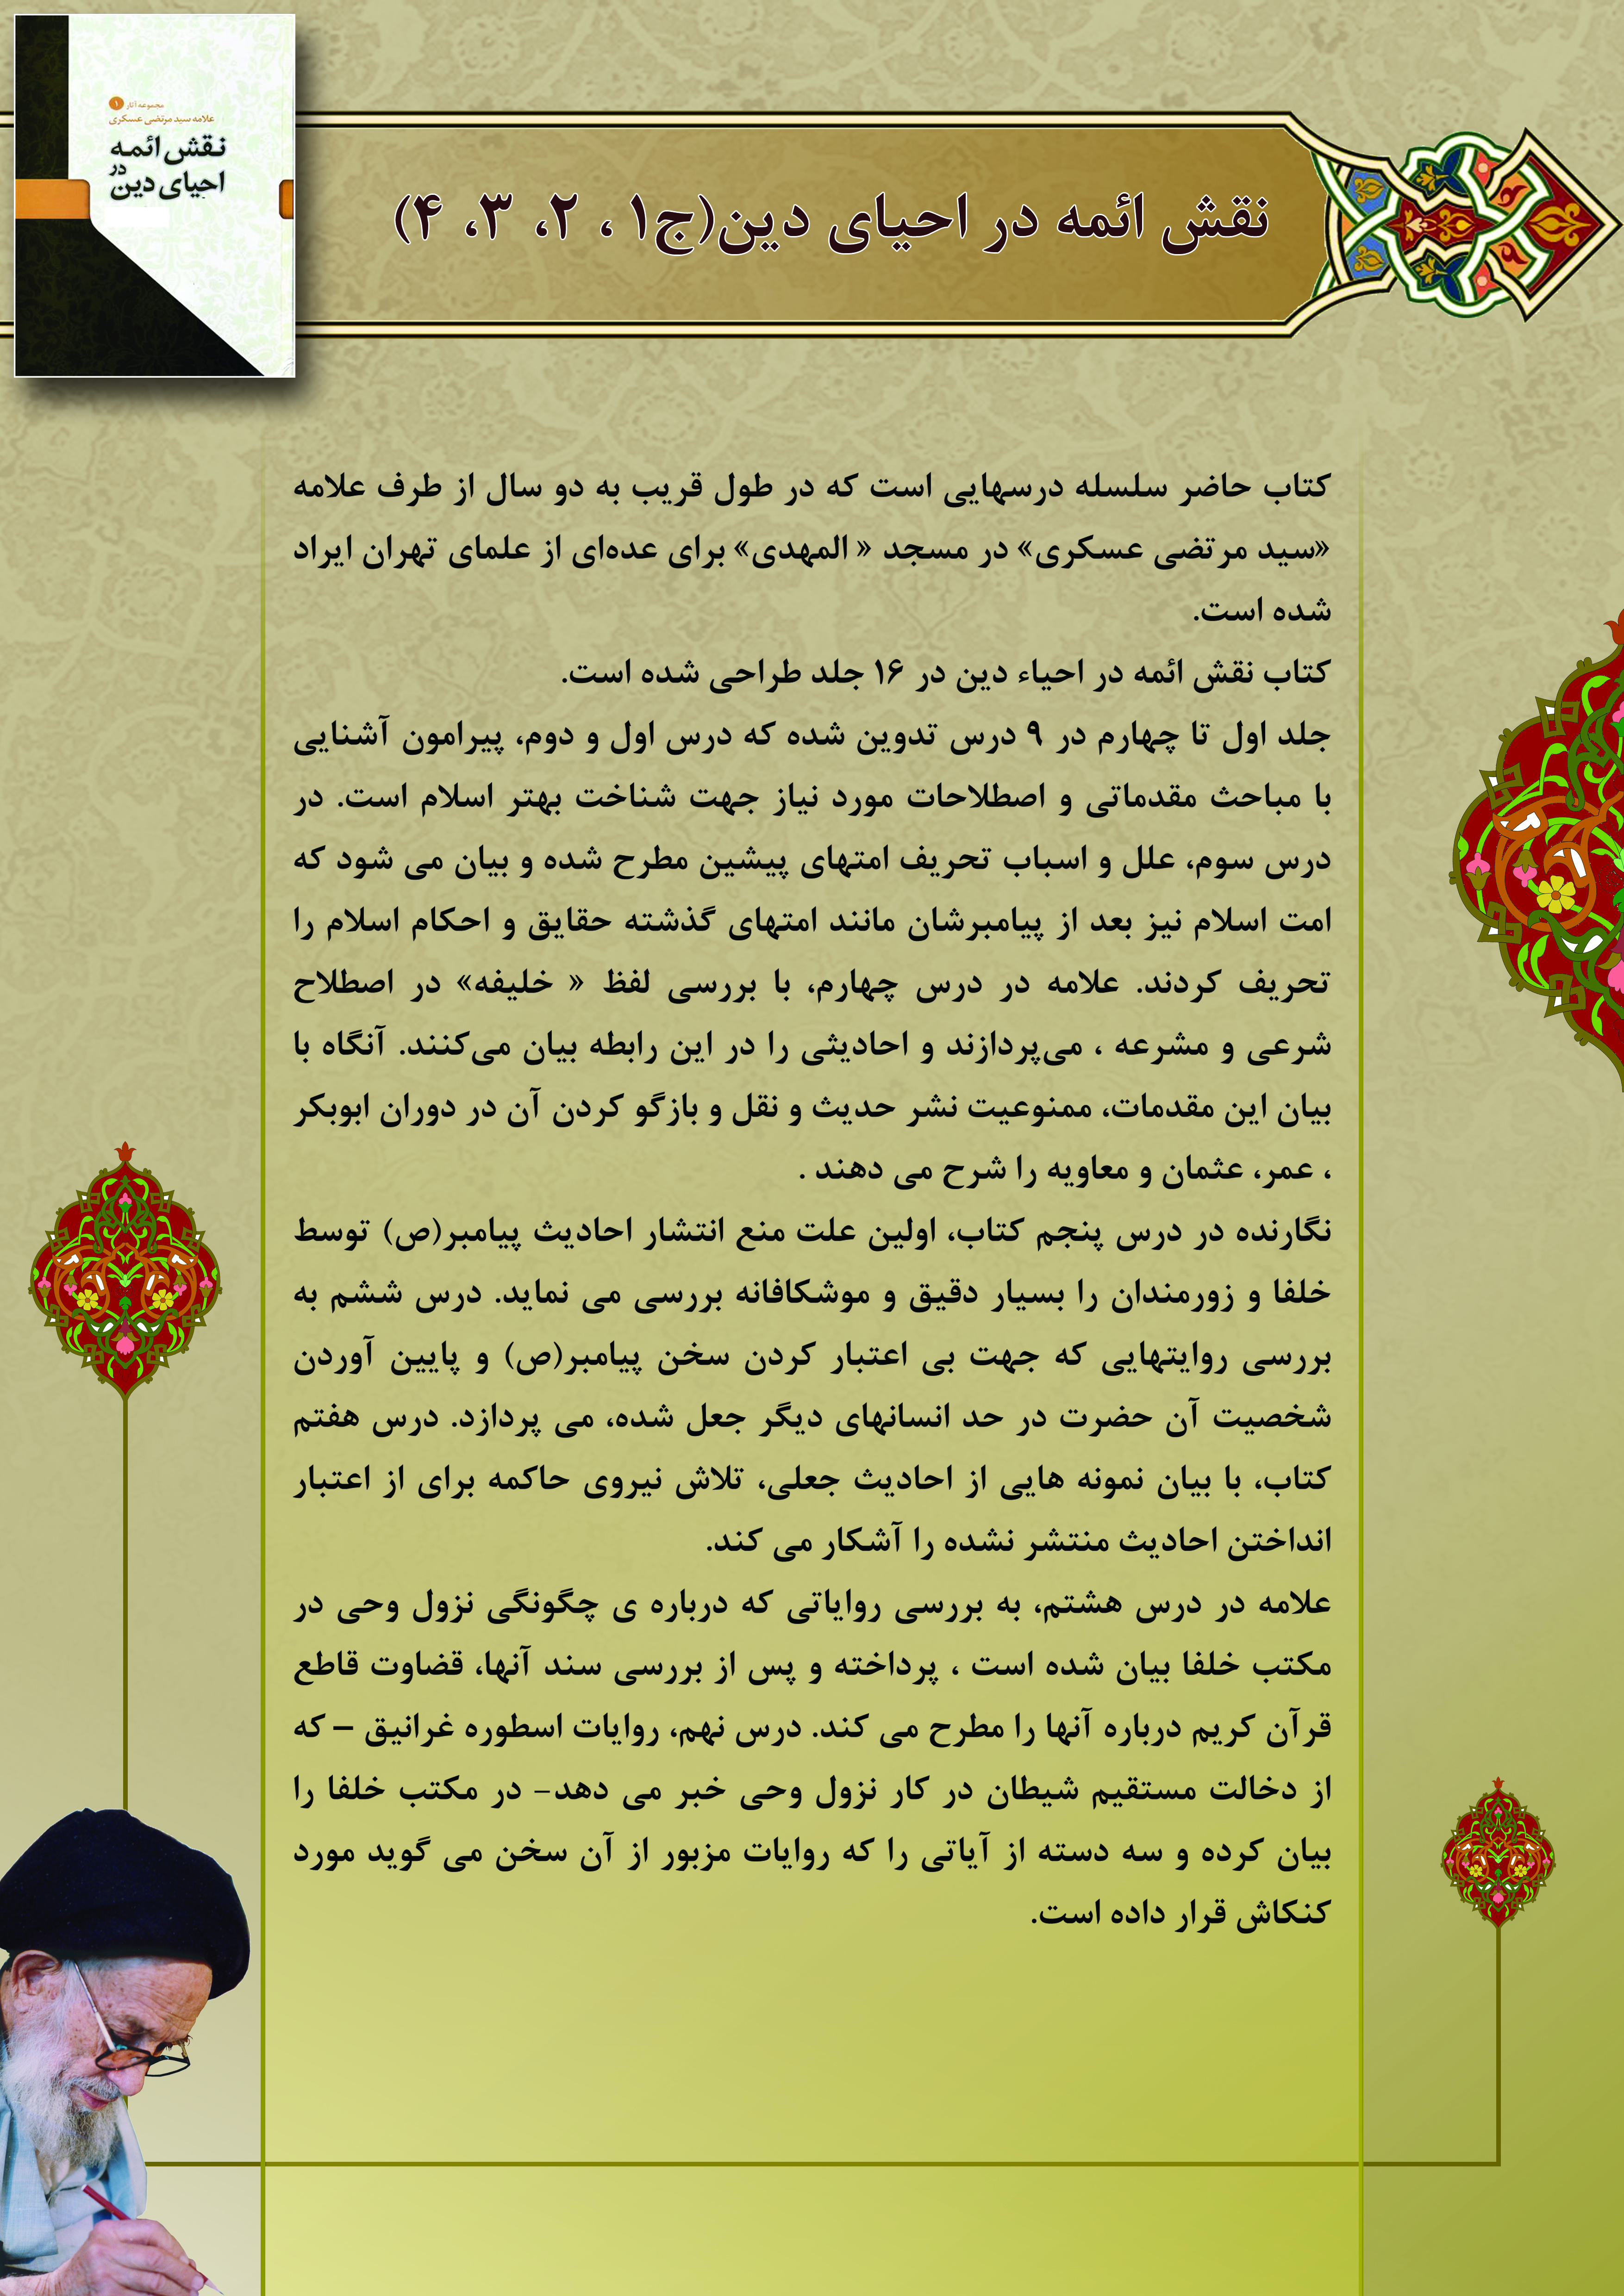 مجموعه آثار ۱
علامه سید مرتضی عسکری
نقش ائمه
در
احیای دین
نقش ائمه در احیای دین(ج۱ ، ۲، ۳، ۴)
کتاب حاضر سلسله درسهایی است که در طول قریب به دو سال از طرف علامه
«سید مرتضی عسکری» در مسجد « المهدی» برای عده‌ای از علمای تهران ایراد
شده است.
کتاب نقش ائمه در احیاء دین در ۱۶ جلد طراحی شده است.
جلد اول تا چهارم در ۹ درس تدوین شده که درس اول و دوم، پیرامون آشنایی
با مباحث مقدماتی و اصطلاحات مورد نیاز جهت شناخت بهتر اسلام است. در
درس سوم، علل و اسباب تحریف امتهای پیشین مطرح شده و بیان می شود که
امت اسلام نیز بعد از پیامبرشان مانند امتهای گذشته حقایق و احکام اسلام را
تحریف کردند. علامه در درس چهارم، با بررسی لفظ « خلیفه» در اصطلاح
شرعی و مشرعه ، می‌پردازند و احادیثی را در این رابطه بیان می‌کنند. آنگاه با
بیان این مقدمات، ممنوعیت نشر حدیث و نقل و بازگو کردن آن در دوران ابوبکر
، عمر، عثمان و معاویه را شرح می دهند .
نگارنده در درس پنجم کتاب، اولین علت منع انتشار احادیث پیامبر(ص) توسط
خلفا و زورمندان را بسیار دقیق و موشکافانه بررسی می نماید. درس ششم به
بررسی روایتهایی که جهت بی اعتبار کردن سخن پیامبر(ص) و پایین آوردن
شخصیت آن حضرت در حد انسانهای دیگر جعل شده، می پردازد. درس هفتم
کتاب، با بیان نمونه هایی از احادیث جعلی، تلاش نیروی حاکمه برای از اعتبار
انداختن احادیث منتشر نشده را آشکار می کند.
علامه در درس هشتم، به بررسی روایاتی که درباره ی چگونگی نزول وحی در
مکتب خلفا بیان شده است ، پرداخته و پس از بررسی سند آنها، قضاوت قاطع
قرآن کریم درباره آنها را مطرح می کند. درس نهم، روایات اسطوره غرانیق – که
از دخالت مستقیم شیطان در کار نزول وحی خبر می دهد- در مکتب خلفا را
بیان کرده و سه دسته از آیاتی را که روایات مزبور از آن سخن می گوید مورد
کنکاش قرار داده است.